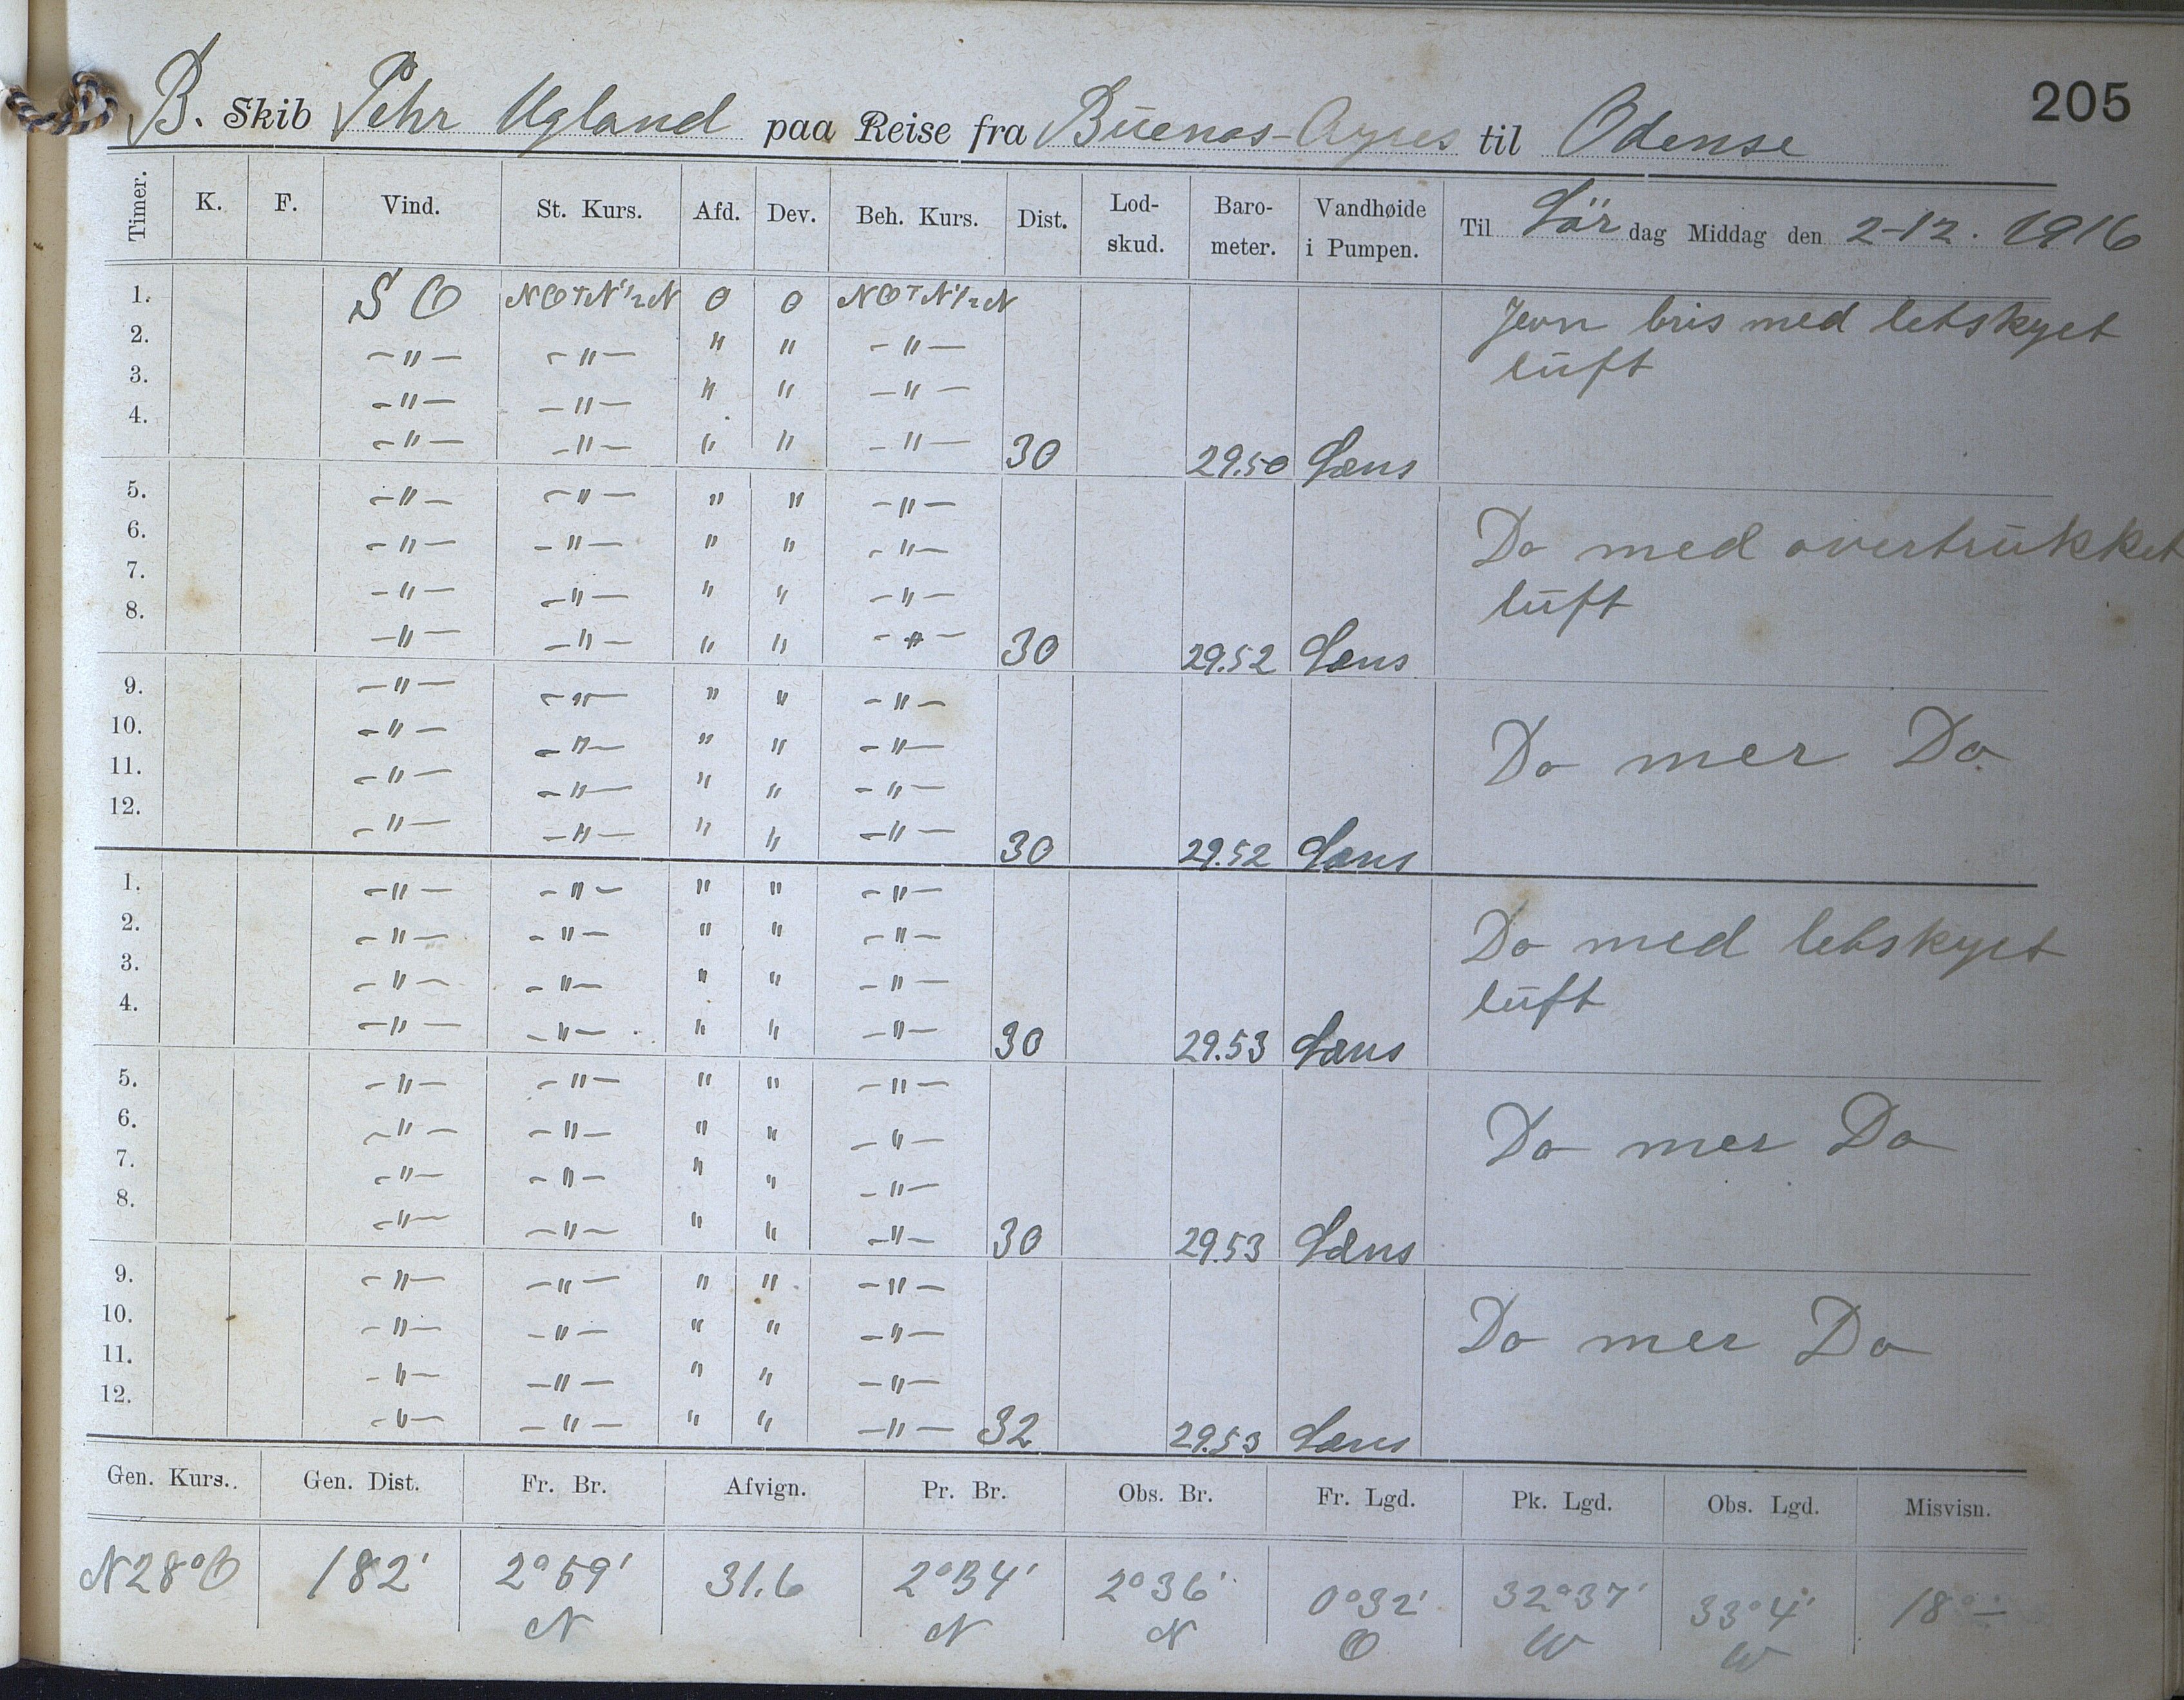 205
B. Skib Pehr Ugland paa Reise fra Buenos-Ayres til Odense
Timer. K. F. Vind. St. Kurs. Afd. Dev. Beh. Kurs. Dist. Lod-skud. Baro-meter. Vandhøide i Pumpen. Til Lördag Middag den 2-12. 1916
1. S O NOTN½N O O NOTN½N Jevn bris med letskyet
2. -"- -"- " " -"- luft
3. -"- -"- " " -"-
4. -"- -"- " " -"- 30 29.50 Læns
5. -"- -"- " " -"- Do med overtrukket
6. -"- -"- " " -"- luft
7. -"- -"- " " -"-
8. -"- -"- " " -"- 30 29.52 Læns
9. -"- -"- " " -"-
10. -"- -"- " " -"- Do mer Do
11. -"- -"- " " -"-
12. -"- -"- " " -"- 30 29.52 Læns
1. -"- -"- " " -"- Do med letskyet
2. -"- -"- " " -"- luft
3. -"- -"- " " -"-
4. -"- -"- " " -"- 30 29.53 Læns
5. -"- -"- " " -"- Do mer Do
6. -"- -"- " " -"-
7. -"- -"- " " -"-
8. -"- -"- " " -"- 30 29.53 Læns
9. -"- -"- " " -"- Do mer Do
10. -"- -"- " " -"-
11. -"- -"- " " -"-
12. -"- -"- " " -"- 32 29.53 Læns
Gen. Kurs. Gen. Dist. Fr. Br. Afvign. Pr. Br. Obs. Br. Fr. Lgd. Pk. Lgd. Obs. Lgd. Misvisn.
N28°O 182' 2°59' 31.6 2°34' 2°36' 0°32' 32°37' 33°4' 18°-
N N N O W W